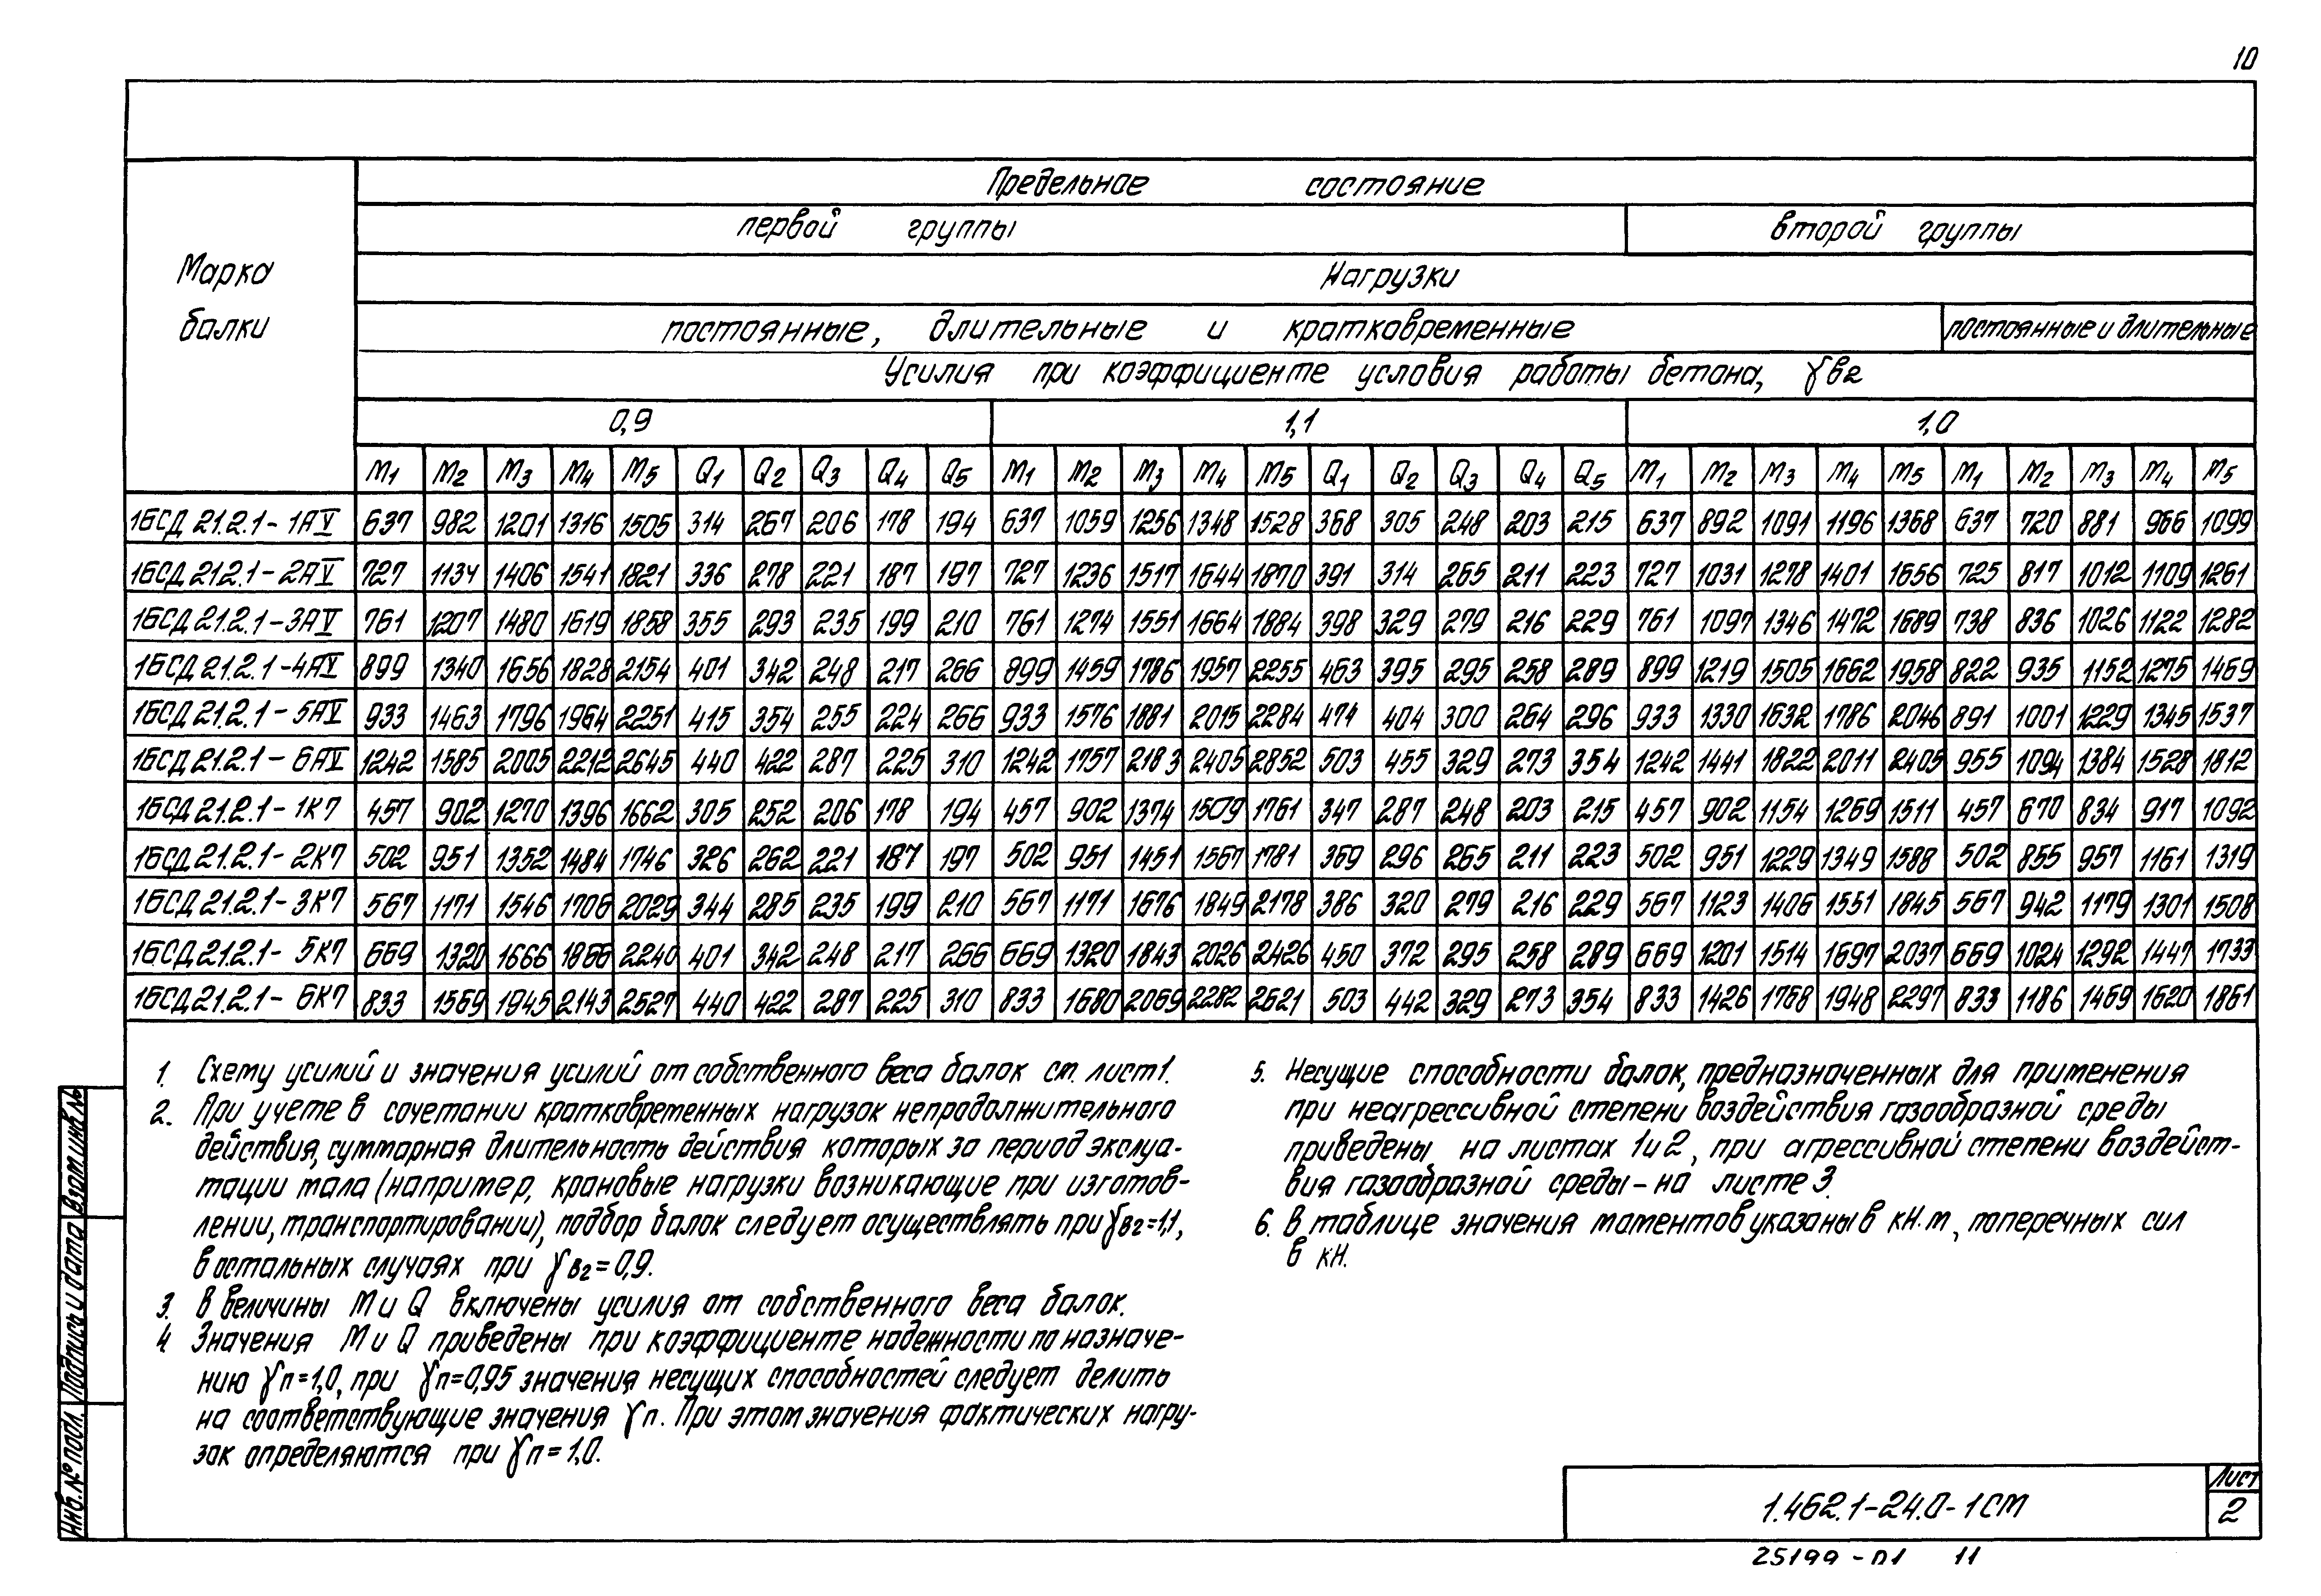 10
Марка балки
Предельное состояние
первой группы второй группы
Нагрузки
постоянные, длительные и кратковременные постоянные и длительные
Усилия при коэффициенте условия работы бетона, γв2
0,9 1,1 1,0
M1 M2 M3 M4 M5 Q1 Q2 Q3 Q4 Q5 M1 M2 M3 M4 M5 Q1 Q2 Q3 Q4 Q5 M1 M2 M3 M4 M5 M1 M2 M3 M4 M5
1БСД 21.2.1-1АV 637 982 1201 1316 1505 314 267 206 178 194 637 1059 1256 1348 1528 368 305 248 203 215 637 892 1091 1196 1368 637 720 881 966 1099
1БСД 21.2.1-2АV 727 1134 1406 1541 1821 336 278 221 187 197 727 1236 1517 1644 1870 391 314 265 211 223 727 1031 1278 1401 1656 725 817 1012 1109 1261
1БСД 21.2.1-3АV 761 1207 1480 1619 1858 355 293 235 199 210 761 1274 1551 1664 1884 398 329 279 216 229 761 1097 1346 1472 1689 738 836 1026 1122 1282
1БСД 21.2.1-4АV 899 1340 1656 1828 2154 401 342 248 217 266 899 1459 1786 1957 2255 463 395 295 258 289 899 1219 1505 1662 1958 822 935 1152 1275 1469
1БСД 21.2.1-5АV 933 1463 1796 1964 2251 415 354 255 224 266 933 1576 1881 2015 2284 474 404 300 264 296 933 1330 1632 1786 2046 891 1001 1229 1345 1537
1БСД 21.2.1-6АV 1242 1585 2005 2212 2645 440 422 287 225 310 1242 1757 2183 2405 2852 503 455 329 273 354 1242 1441 1822 2011 2405 955 1094 1384 1528 1812
1БСД 21.2.1-1К7 457 902 1270 1396 1662 305 252 206 178 194 457 902 1374 1509 1761 347 287 248 203 215 457 902 1154 1269 1511 457 670 834 917 1092
1БСД 21.2.1-2К7 502 951 1352 1484 1746 326 262 221 187 197 502 951 1451 1567 1781 369 296 265 211 223 502 951 1229 1349 1588 502 855 957 1161 1319
1БСД 21.2.1-3К7 567 1171 1546 1706 2029 344 285 235 199 210 567 1171 1676 1849 2178 386 320 279 216 229 567 1123 1406 1551 1845 567 942 1179 1301 1508
1БСД 21.2.1-5К7 669 1320 1666 1866 2240 401 342 248 217 266 669 1320 1843 2026 2426 450 372 295 258 289 669 1201 1514 1697 2037 669 1024 1292 1447 1733
1БСД 21.2.1-6К7 833 1569 1945 2143 2527 440 422 287 225 310 833 1680 2069 2282 2621 503 442 329 273 354 833 1426 1768 1948 2297 833 1186 1469 1620 1861
1. Схему усилий и значения усилий от собственного веса балок см. лист1.
2. При учете в сочетании кратковременных нагрузок непродолжительного
действия, суммарная длительность действия которых за период эксплуа-
тации мала (например, крановые нагрузки возникающие при изготов-
лении, транспортировании), подбор балок следует осуществлять при γв2=1,1,
в остальных случаях при γв2=0,9.
3. В величины М и Q включены усилия от собственного веса балок.
4 Значения М и Q приведены при коэффициенте надежности по назначе-
нию γп=1,0, при γп=0,95 значения несущих способностей следует делить
на соответствующие значения γп. При этом значения фактических нагру-
зок определяются при γп=1,0.
5. Несущие способности балок, предназначенных для применения
при неагрессивной степени воздействия газообразной среды
приведены на листах 1и2, при агрессивной степени воздейст-
вия газообразной среды-на листе 3.
6. В таблице значения моментов указаны в кН.м, поперечных сил
в кН.
Инв. № подл. Подпись и дата Взам инв №
1.462.1-24.0-1СМ
Лист
2
25199-01 11